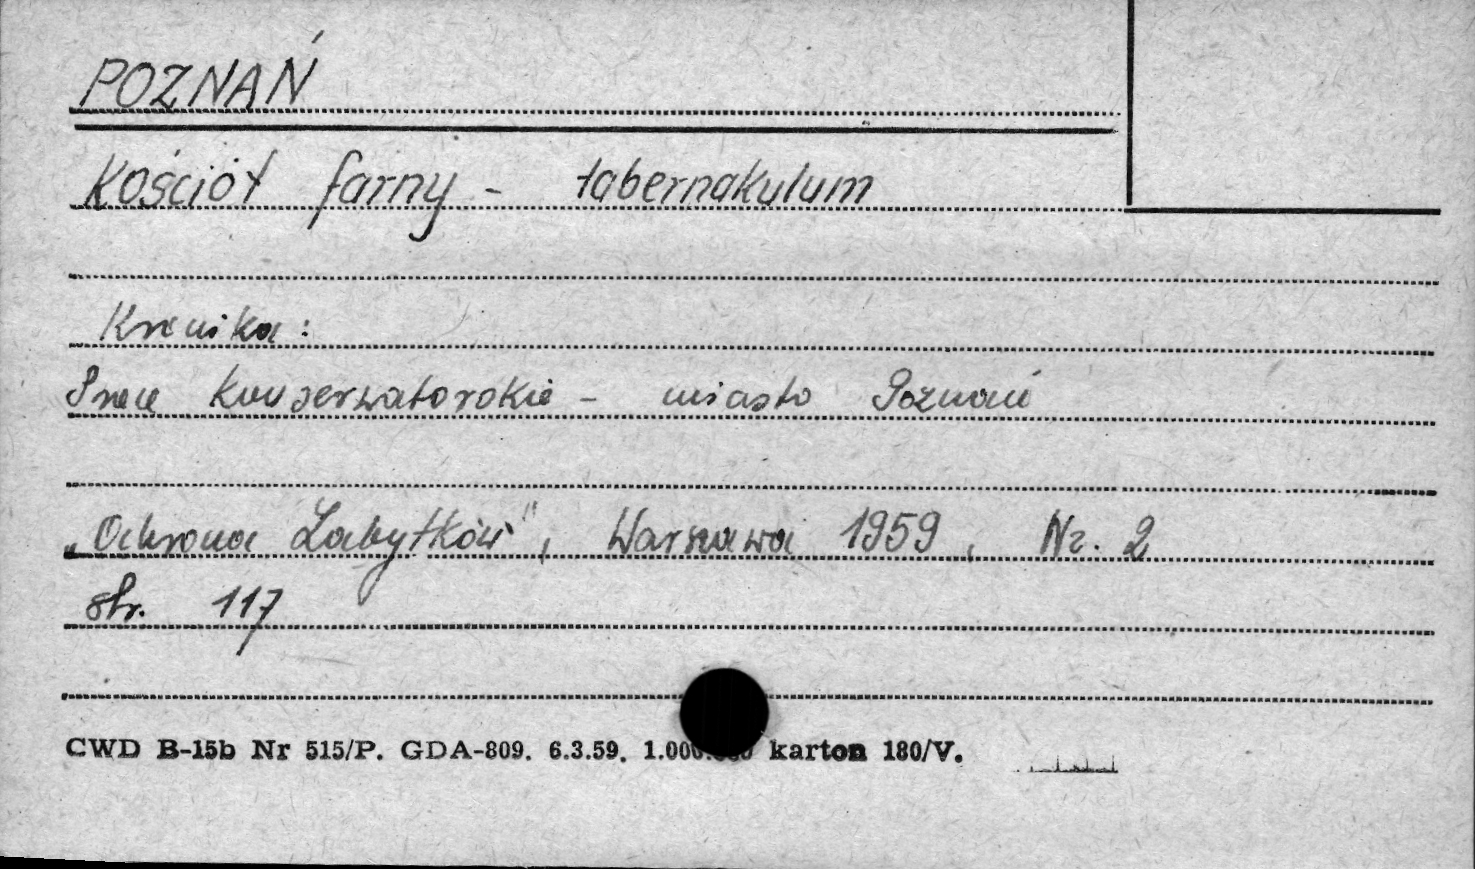 POZNAŃ
Kościół farny - tabernakulum
Kronika:
Prace konserwatorskie - miasto Poznań
„Ochrona Zabytków", Warszawa 1959, Nr. 2
str. 117
CWD B-15b Nr 515/P. GDA-809. 6.3.59. 1.000.000 karton 180/V.